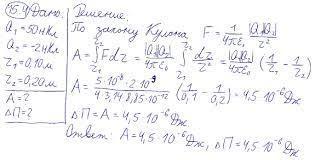 15.4 Дано:
Q₁ = 50 нКл
Q₂ = -2 нКл
r₁ = 0,10 м
r₂ = 0,20 м
A = ?
ΔП = ?
Решение.
По закону Кулона F = 1/4πε₀ |Q₁Q₂|/r²
A = ∫Fdr = |Q₁Q₂|/4πε₀ ∫dr/r² = |Q₁Q₂|/4πε₀ (1/r₁ - 1/r₂)
A = 5·10⁻⁸·2·10⁻⁹/4·3,14·8,85·10⁻¹² (1/0,1 - 1/0,2) = 4,5·10⁻⁶ Дж
ΔП = A = 4,5·10⁻⁶ Дж
Ответ: A = 4,5·10⁻⁶ Дж, ΔП = 4,5·10⁻⁶ Дж